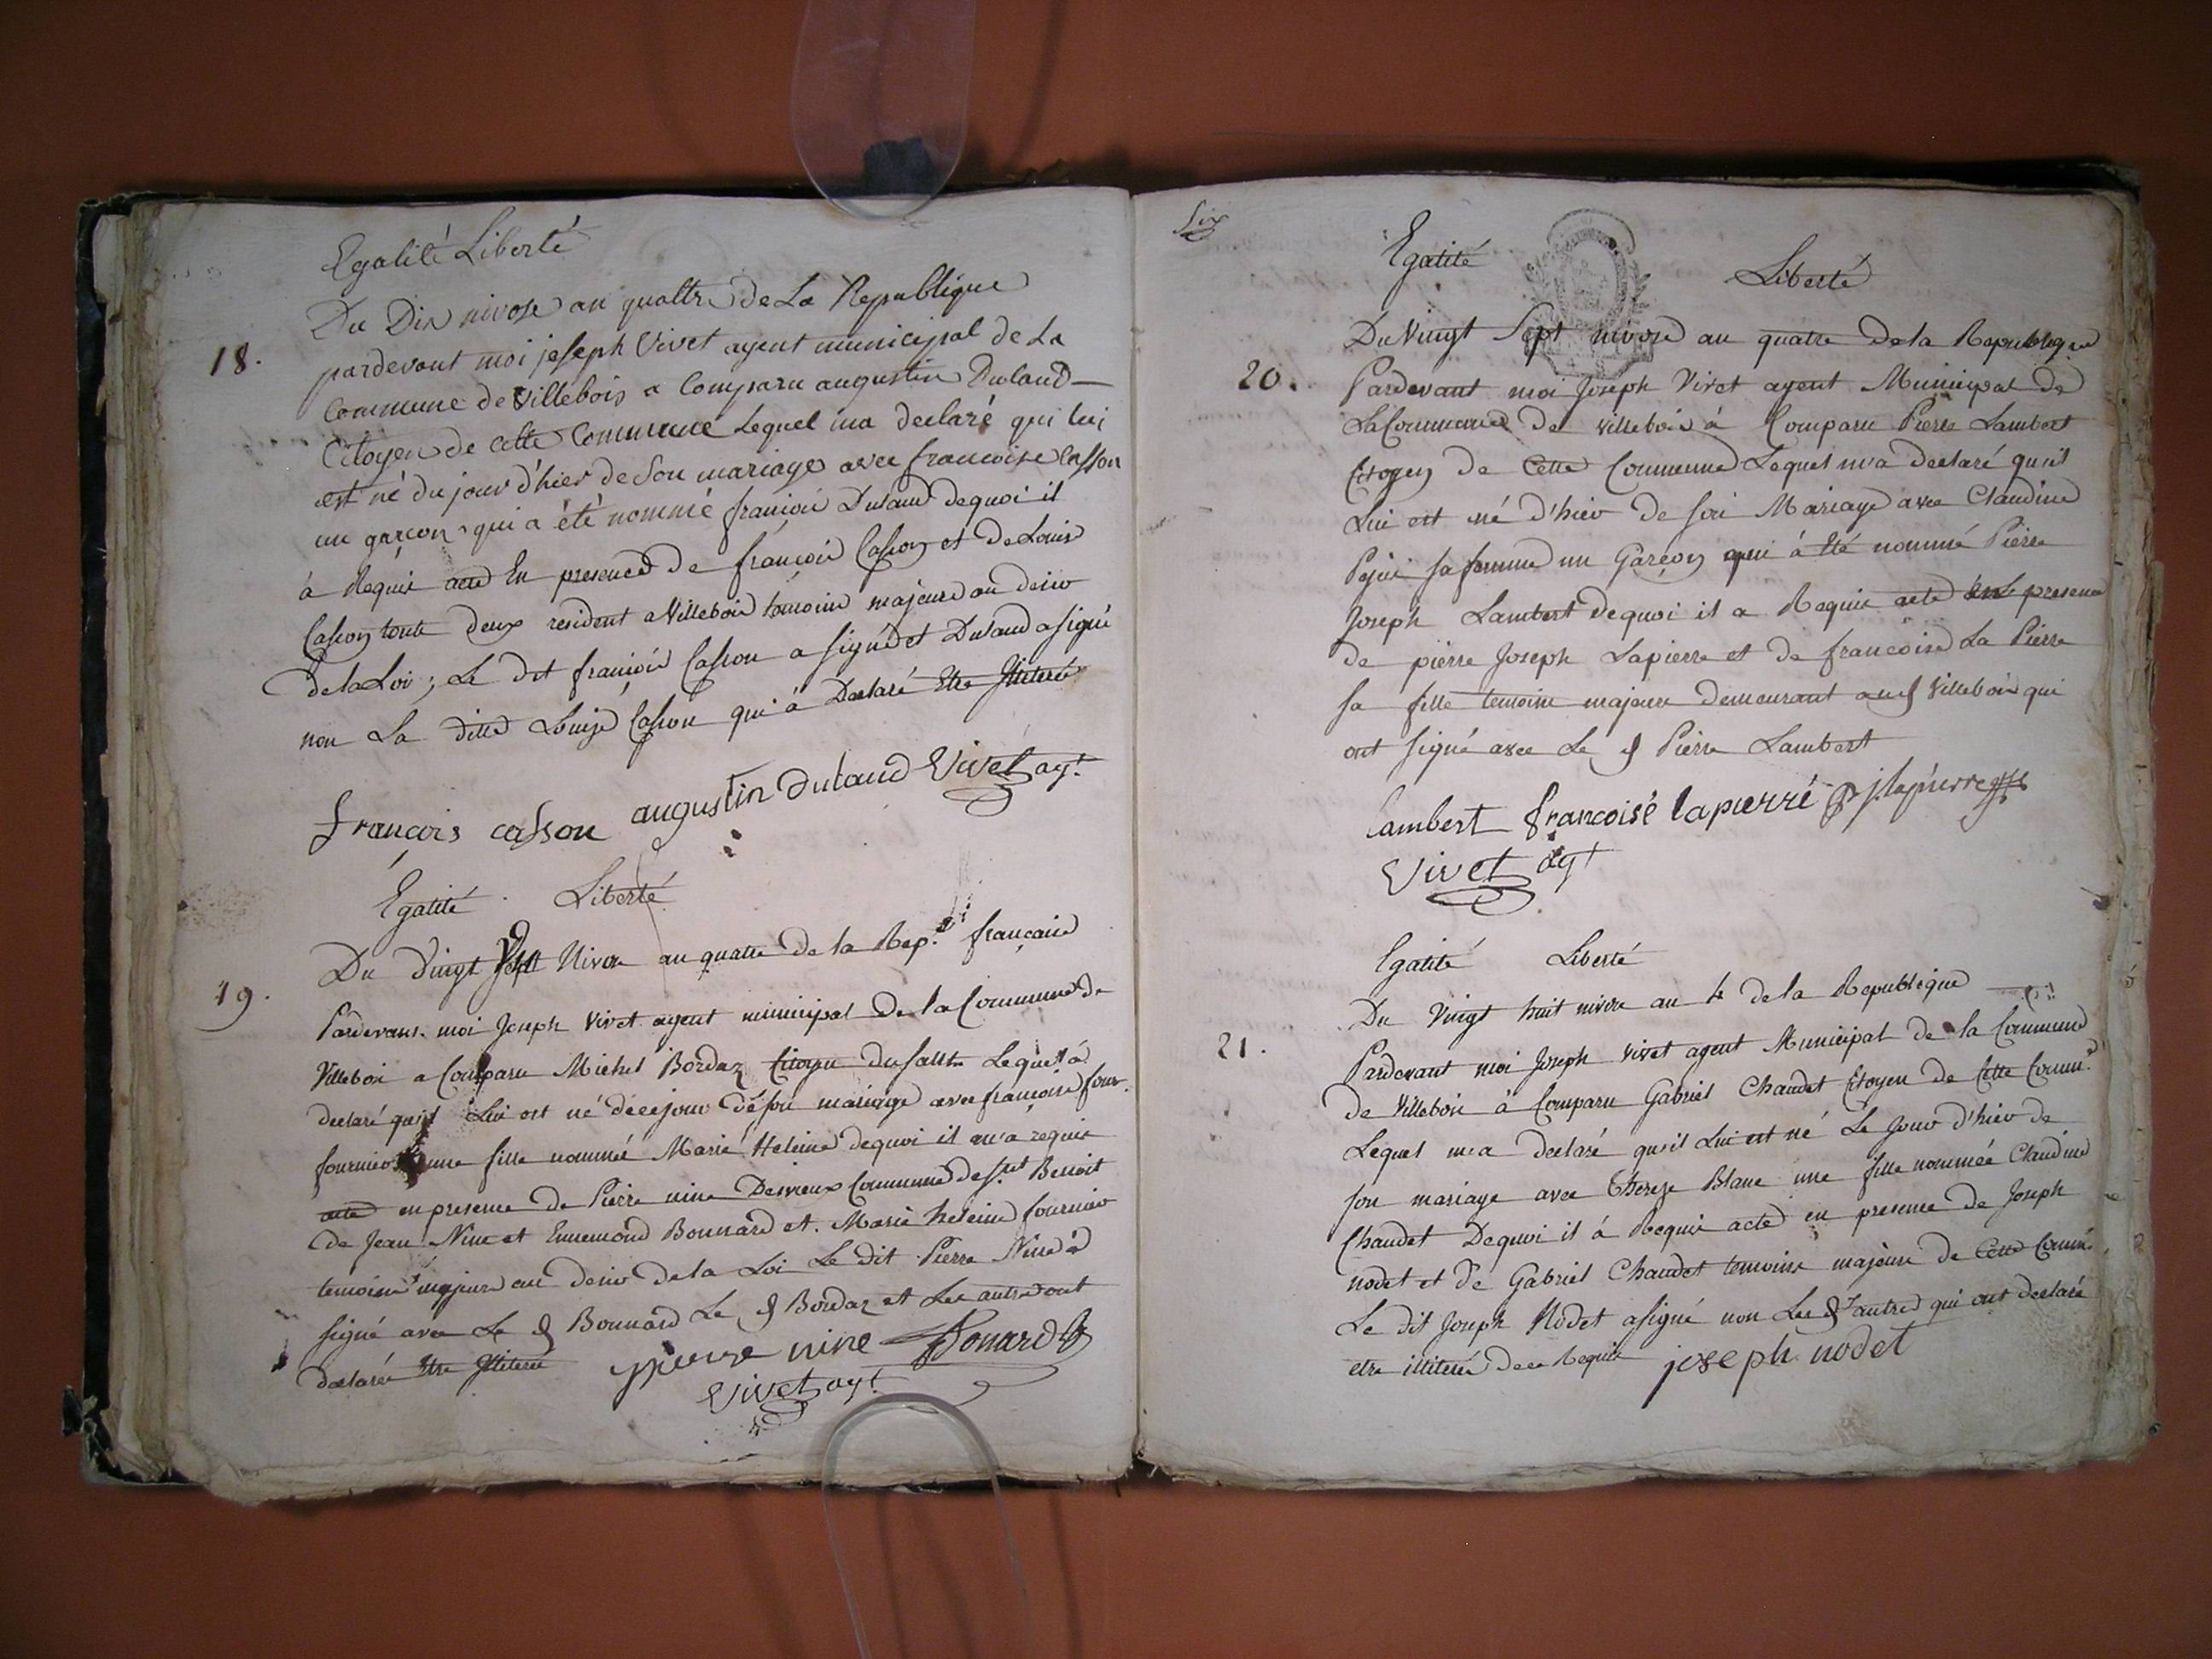 Egalité Liberté
18.
Du Dix nivose an quattre de La Republique
pardevant moi joseph Vivet agent municipal de La
Commune de villebois a Comparu augustin Dulaud
Citoyen de cette Commune Lequel ma declaré qui lui
est né du jour d'hier de Son mariage avec francoise Casson
un garçon qui a été nommé françois Dulaud dequoi il
à Requis acte En presence de françois Casson et de Louise
Casson toute deux resident a Villebois temoins majeurs au desir
de la Loi; Le dit françois Casson a signé et Dulaud a signé
non La ditte Louise Casson qui à Declaré Etre Illiteré
françois casson augustin dulaud Vivet agt
Egalité Liberté
19.
Du Vingt Sept Nivose an quatre de la Rep.e française
Pardevant moi Joseph Vivet agent municipal de la Commune de
Villebois a Comparu Michel Bordaz Citoyen du Lequel à
declaré qu'il Lui est né de ce jour de son mariage avec françoise four
fournier une fille nommé Marie Heleine dequoi il m'a requis
acte en presence de Pierre nine Commune de st Benoit
de Jean Nine et Ennemond Bonnard et Marie heleine fournier
temoins majeurs au desir de la Loi Le dit Pierre Nine à
signé avec Le d Bonnard Le d Bordaz et Les autres ont
declarée Etre Illiteré pierre nine Bonard
Vivet agt
Six
Egalité Liberté
20.
Du Vingt Sept nivose an quatre de la Republique
Pardevant moi Joseph Vivet agent Municipal de
La Commune de villebois à Comparu Pierre Lambert
Citoyen de Cette Commune Lequel m'a declaré qu'il
Lui est né d'hier de son Mariage avec Claudine
sa femme un Garçon qui à été nommé Pierre
Joseph Lambert dequoi il a Requis acte en presence
de pierre Joseph Lapierre et de francoise La Pierre
sa fille temoins majeurs demeurant aud Villebois qui
ont signé avec Le d Pierre Lambert
lambert françoise lapierre p j lapierre
Vivet agt
Egalité Liberté
21.
Du Vingt huit nivose an 4 de la Republique
Pardevant moi Joseph vivet agent Municipal de la Commune
de Villebois à Comparu Gabriel Chaudet Citoyen de Cette Comm.e
Lequel m'a declaré qu'il Lui est né Le Jour d'hier de
son mariage avec Therese Blanc une fille nommée Claudine
Chaudet Dequoi il à Requis acte en presence de Joseph
nodet et de Gabriel Chaudet temoins majeurs de Cette Comm.
Le dit Joseph Nodet a signé non Les d autres qui ont declaré
etre illiteré de ce Requis joseph nodet